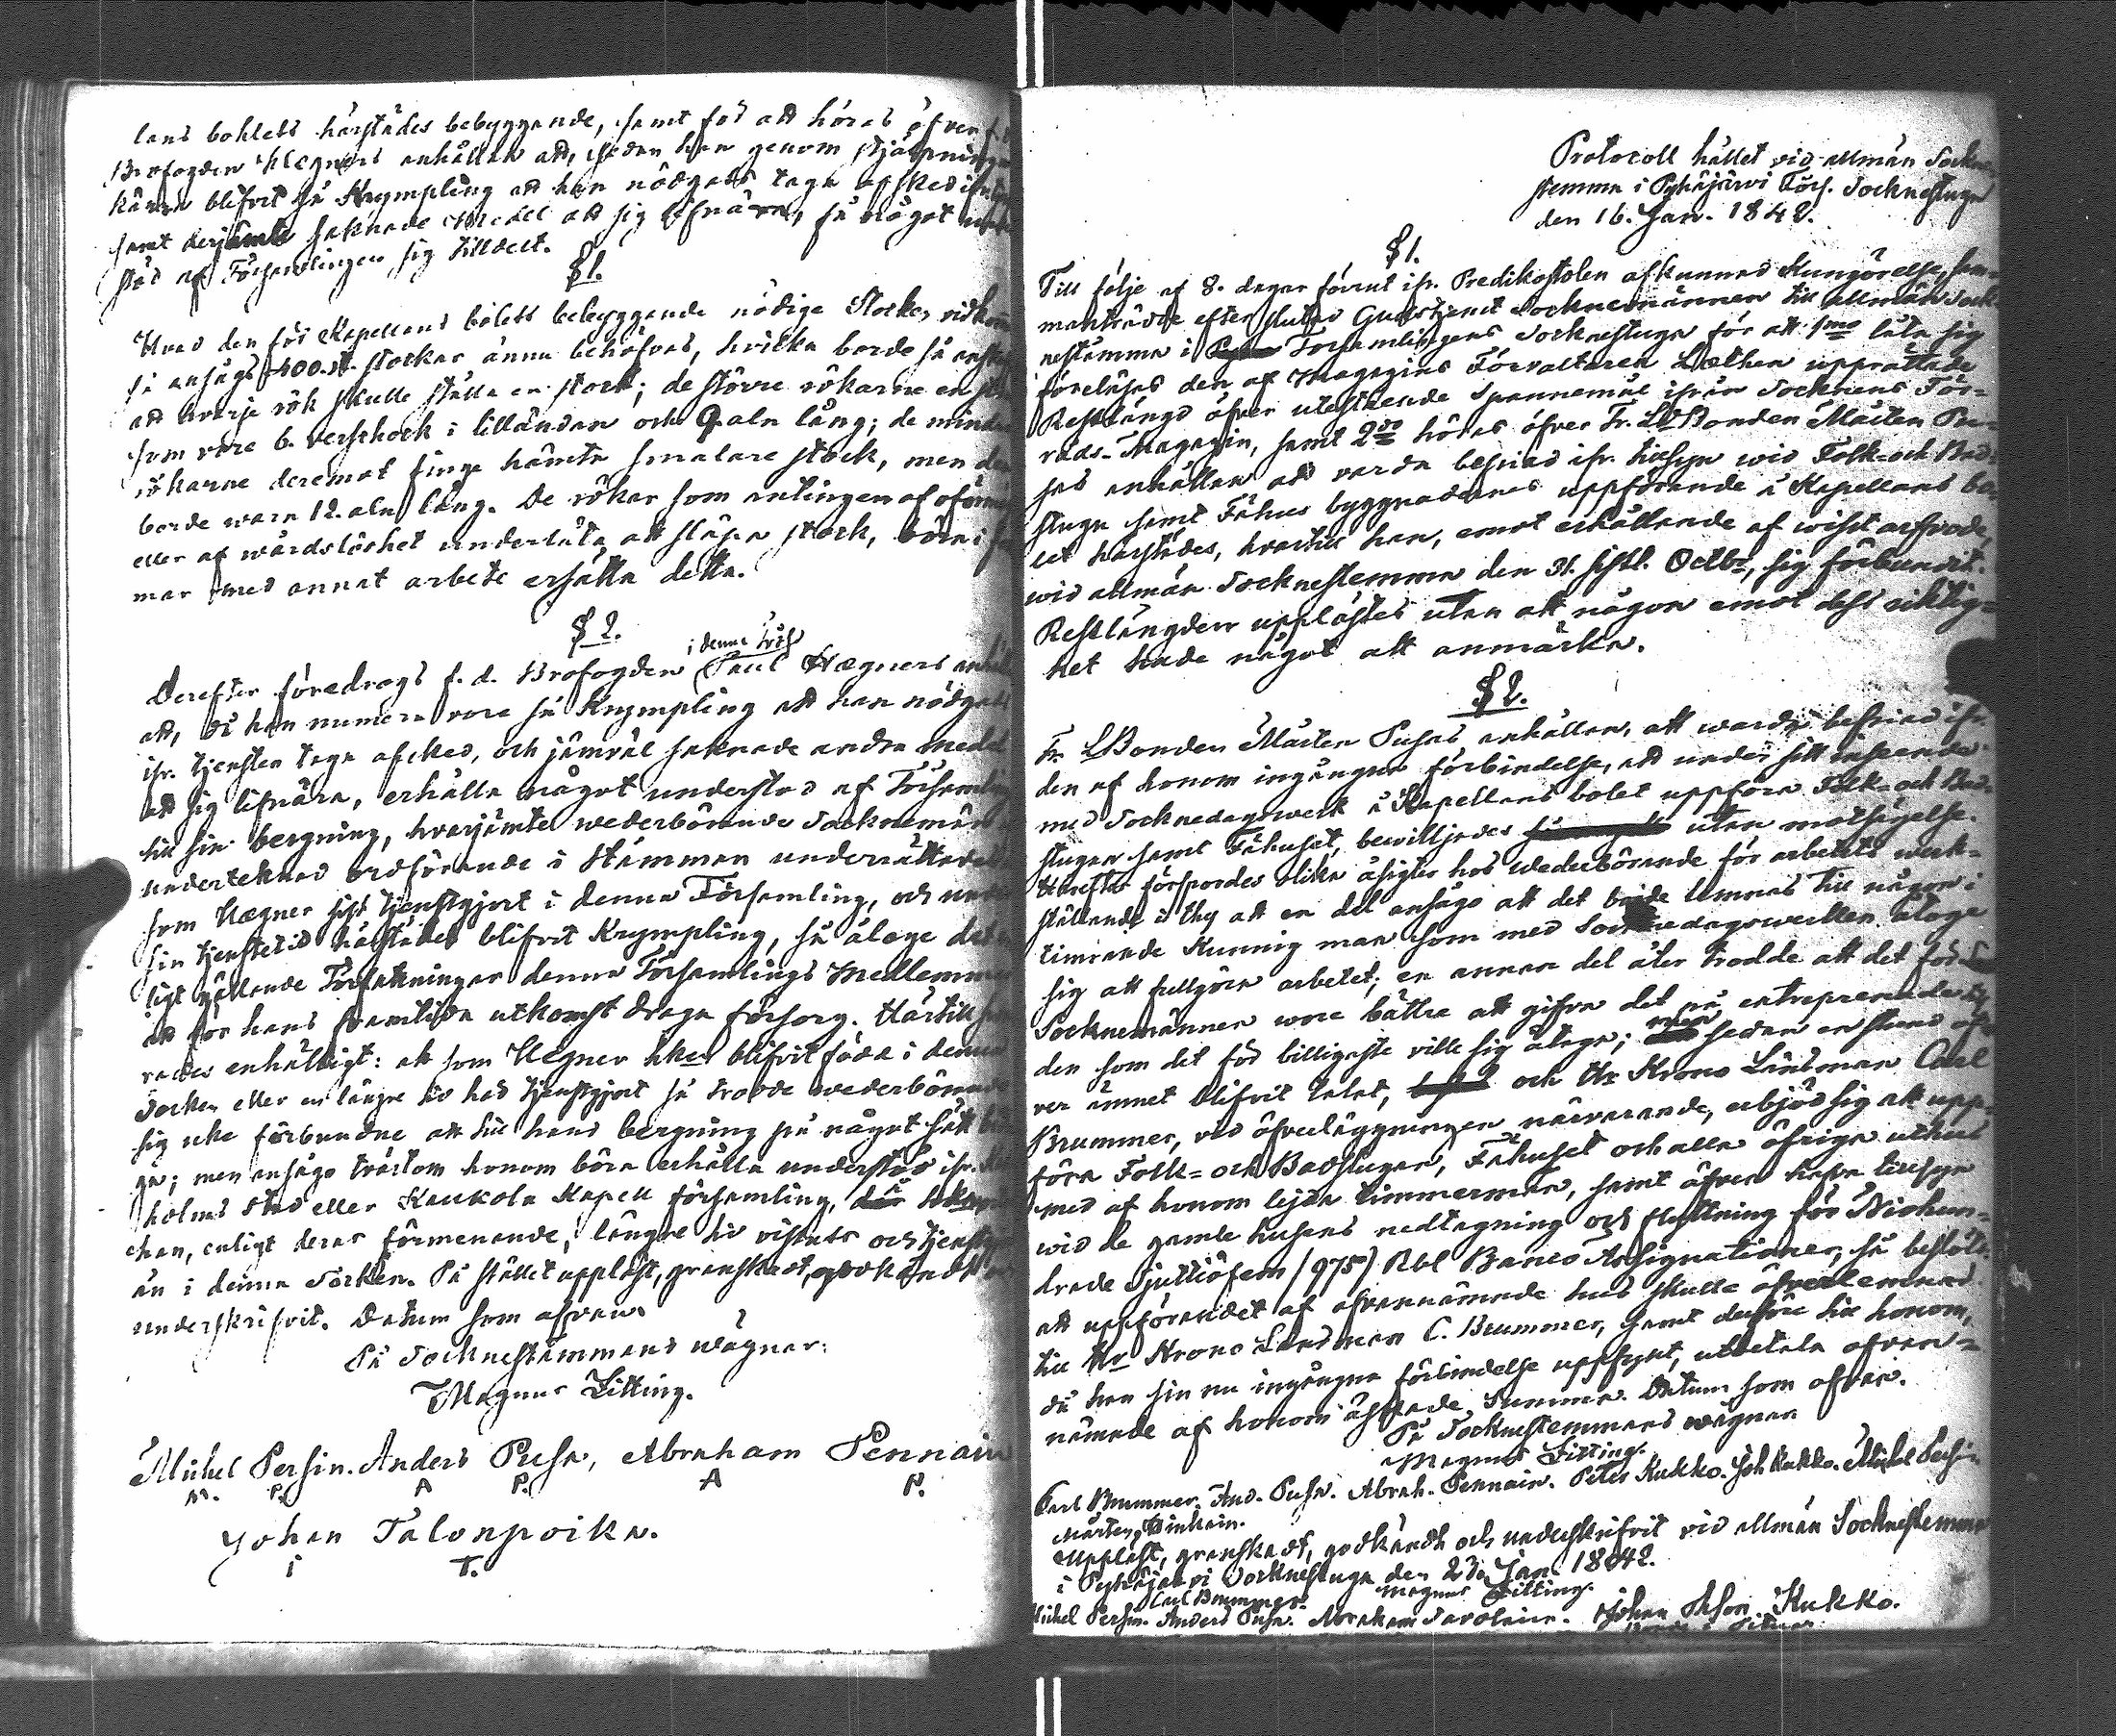 lans bohlets härstädes bebyggande, samt för att höras öfver f.d.
Brofogden Hægners anhållan att, sedan han genom stjelpning
kärra blifvit så Krympling att han nödgats taga afsked ifr.
samt derjämte saknade Medel att sig lifnära, få något under
stöd af Församlingen sig tilldelt.
§ 1.
Hvad den för Kapellans bolets bebyggande nödige Stockes vidkom
så ansågs 400. st. stockar ännu behöfvas, hvilka borde så
att hvarje rök skulle ställa en stock; de större rökarne en
som vore 6. verschock i lilländan och 9. aln lång; de mindre
rökarne deremot finge hämta smalare stock, men den
borde wara 12. aln lång. De rökar som antingen af oförm
eller af wårdslöshet underlåta att släpa stock, böra i
mar med annat arbete ersätta detta.
§ 2.
i denna Förs
Derefter föredrogs f. d. Brofogden Paul Hægners anhål
att, då han numera vore så Krympling att han nödgats
ifr. tjensten taga afsked, och jämväl saknade andra medel
att sig lifnära, erhålla något understöd af Församling
till sin bergning, hvarjämte wederbörande Sockneman
undertecknad ordförande i Stämman underrättade
som Hægner sist tjenstgjort i denna Församling, och under
sin tjenstetid härstädes blifvit Krympling, så ålåge det
ligt gällande Författningar denna Församlings Medlemmar
att för hans framtida utkomst draga försorg. Härtill
rades enhälligt: att som Hægner icke blifvit född i denna
Socken eller en längre tid här tjenstgjort så trodde wederbörande
sig icke förbundne att till hans bergning på något sätt
ga; men ansågo tvärtom honom böra erhålla understöd ifr.
holms stad eller Kaukola Kapell församling,
chan, enligt deras förmenande, längre tid vistats och tjenst
än i denna Socken. På stället uppläst, granskadt, godkändt
underskrifvit. Datum som ofvan.
På Socknestämmans wägnar:
Magnus Zitting.
Michel Persin. Anders Pusa, Abraham Pennain
M. P. A P. A P.
Johan Talonpoika.
i T.
Protocoll hållet vid allmän Sockne
stemma i Pyhäjärvi Förs. Socknestuga
den 16. Jan. 1842.
§ 1.
Till följe af 8. dagar förrut ifr. Predikostolen afkunnad Kungörelse, sam-
manträdde efter slutad Gudstjenst Socknemännen till allmän Sock
nestämma i Församlingens Socknestuga för att 1mo låta sig
föreläsas den af Magazins Förvaltaren Læthen upprättade
Restlängd öfver utestående Spannemål ifrån Socknens För-
råds-Magazin, samt 2do höras öfver Fr. LBonden Mårten Pu-
sas anhållan att varda befriad ifr. tillsyn wid Folk- och Bad-
stuga samt Fähus byggnadernes uppförande å Kapellans bo
let härstädes, hvartill han, emot erhållande af wisst arfvode,
wid allmän Socknestemma den 31. sistl. Octbr, sig förbundit.
Restlängden upplästes utan att någon emot dess riktig-
het hade något att anmärka.
§ 2.
Fr. LBonden Mårten Pusas anhållan, att warda befriad ifr.
den af honom ingångna förbindelse, att under sitt inseende
med Socknedagswerk å Kapellans bolet uppföra Folk- och Bad-
stugan samt Fähuset, bewilljades utan motsägelse.
Härefter försspordes olika åsigter hos Wederbörande för arbetets werk-
ställande i thy att en del ansågo att det borde lemnas till någon i
timrande Kunnig man som med Socknedagswerken åtoge
sig att fullgöra arbetet; en annan del åter trodde att det för
Socknemännen wore bättre att gifva det på entreprenade till
den som det för billigaste ville sig åtaga; men sedan en stund öf-
ver ämnet blifvit talat, och Hr Krono Länsman Carl
Brummer, vid öfverläggningen närvarande, erbjöd sig att upp-
föra Folk- och Badstugan, Fähuset och alla öfriga uthus
med af honom lejda timmerman, samt äfven hafva tillsyn
wid de gamla husens nedtagning och flyttning för Niohun-
drade sjuttiofem (975) Rbl Banco Assignationer, så beslöts
att uppförandet af ofvannämnde hus skulle öfverlemnas
till Hr Krono Länsman C. Brummer, samt derföre till honom,
då han sin nu ingångna förbindelse uppfyllt, utbetala ofvan-
nämnde af honom äskade Summa. Datum som ofvan.
På Socknestemmans wägnar
Magnus Zitting.
Carl Brummer. And. Pusa. Abrah. Pennain. Peter Kukko. Joh Kukko. Michel Persin
Mårten Hinkain.
Uppläst, granskadt, godkändt och underskrifvit vid allmän Socknestemma
i Pyhäjärvi Socknestuga den 23. Jan. 1842.
Carl Brummer. Magnus Zitting.
Michel Persin. Anders Pusa. Abraham Savolain. Johan Kukko.